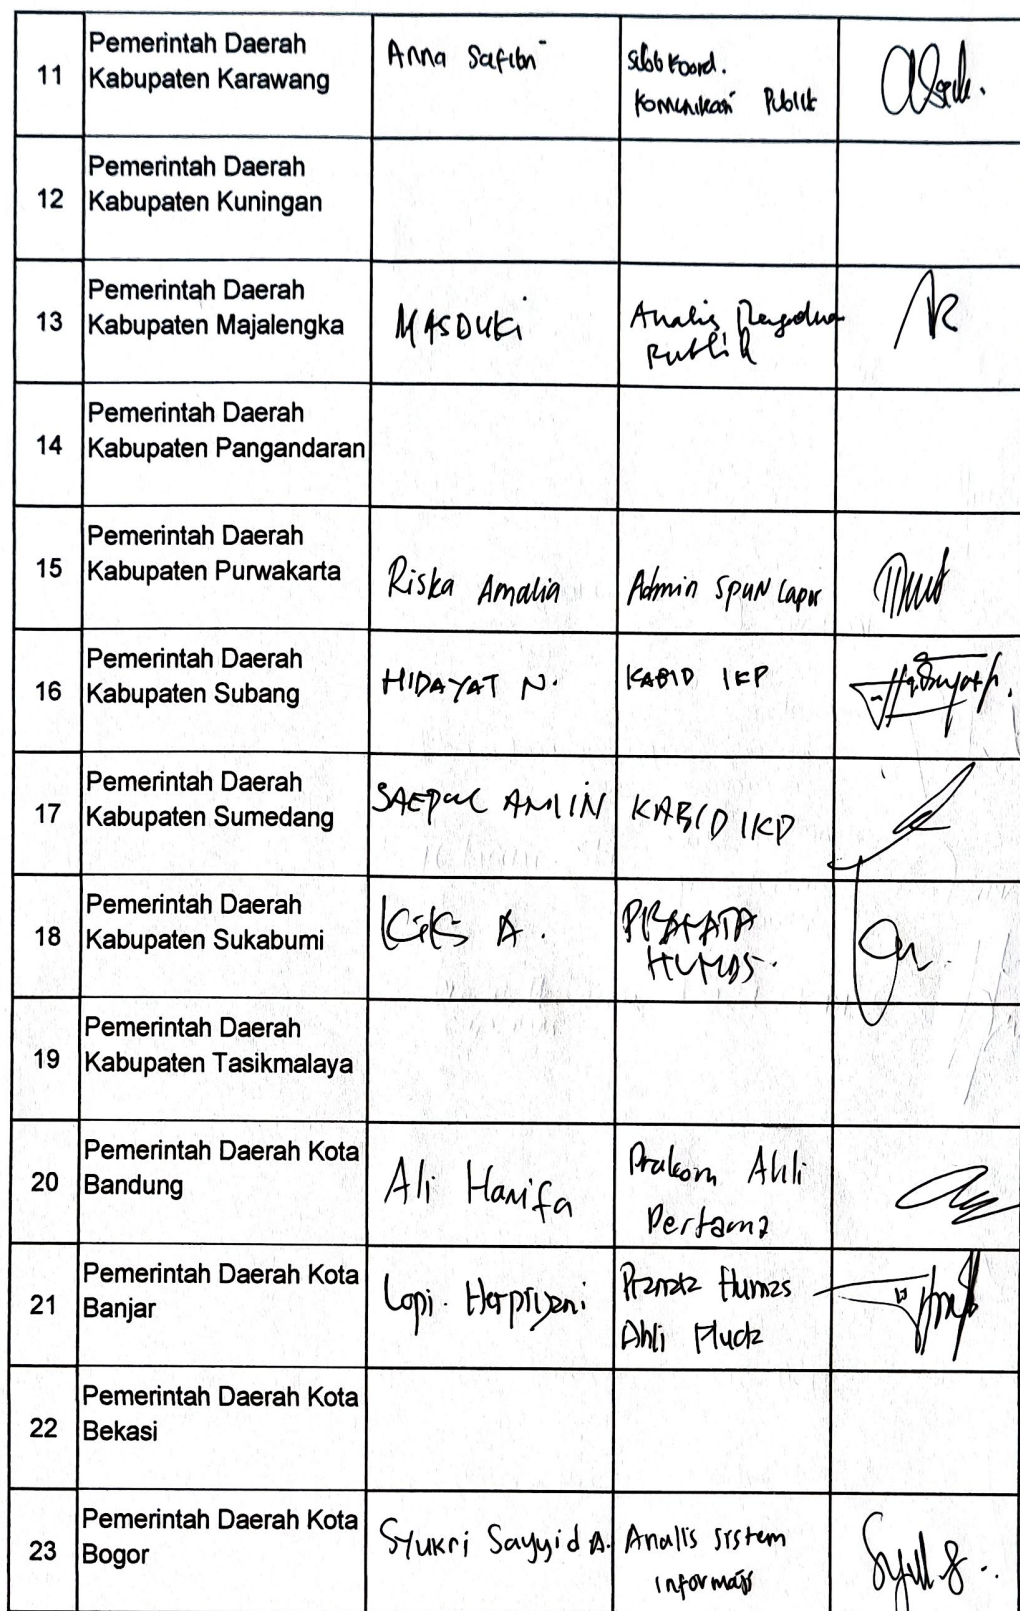 11
Pemerintah Daerah
Kabupaten Karawang
Anna Safitri
Sub Koord.
Komunikasi Publik
12
Pemerintah Daerah
Kabupaten Kuningan
13
Pemerintah Daerah
Kabupaten Majalengka
MASDUKi
Analis
Publik
14
Pemerintah Daerah
Kabupaten Pangandaran
15
Pemerintah Daerah
Kabupaten Purwakarta
Riska Amalia
Admin SP4N Lapor
16
Pemerintah Daerah
Kabupaten Subang
HIDAYAT N.
KABID IKP
17
Pemerintah Daerah
Kabupaten Sumedang
SAEPUL AMIN
KABID IKP
18
Pemerintah Daerah
Kabupaten Sukabumi
A.
PRANATA
HUMAS.
19
Pemerintah Daerah
Kabupaten Tasikmalaya
20
Pemerintah Daerah Kota
Bandung
Ali Hanifa
Prakom Ahli
Pertama
21
Pemerintah Daerah Kota
Banjar
Lopi. Herpriyani
Pranata Humas
Ahli Muda
22
Pemerintah Daerah Kota
Bekasi
23
Pemerintah Daerah Kota
Bogor
Syukri Sayyid A.
Analis sistem
informasi